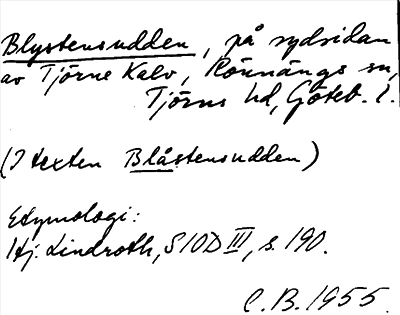 Blystensudden, på sydsidan
av Tjörne Kalv, Rönnängs sn,
Tjörns hd, Göteb. l.
(I texten Blåstensudden)
Etymologi:
Hj. Lindroth, SIOD III, s. 190.
C.B. 1955.